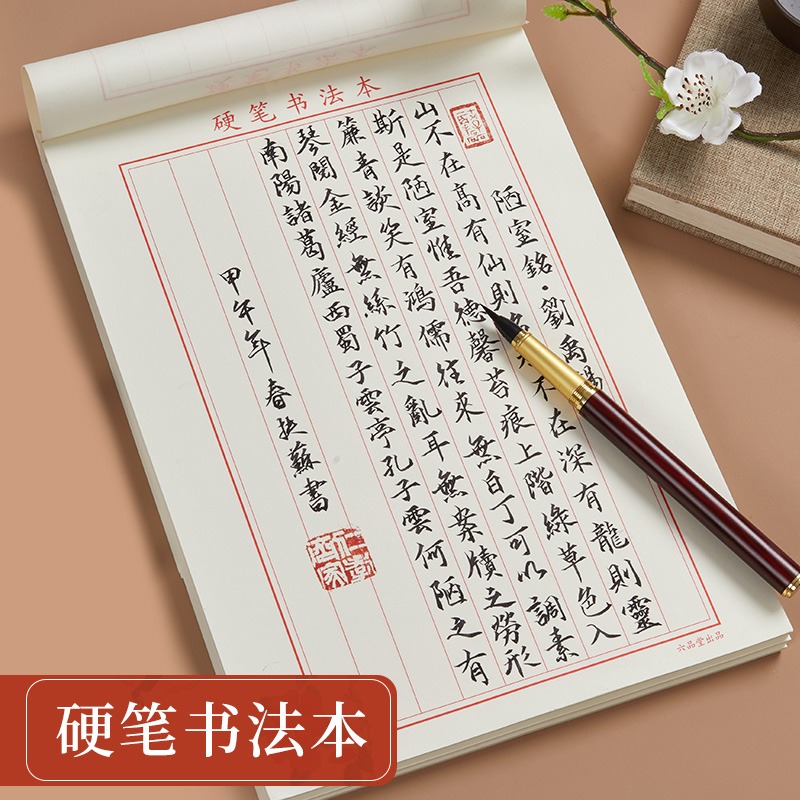 硬笔书法本
陋室銘·劉禹錫
山不在高有仙則不在深有龍則靈
斯是陋室惟吾德馨苔痕上階綠草色入
簾青談笑有鴻儒往來無白丁可以調素
琴閱金經無絲竹之亂耳無案牘之勞形
南陽諸葛廬西蜀子雲亭孔子雲何陋之有
甲午年春扶蘇書
六品堂出品
硬笔书法本